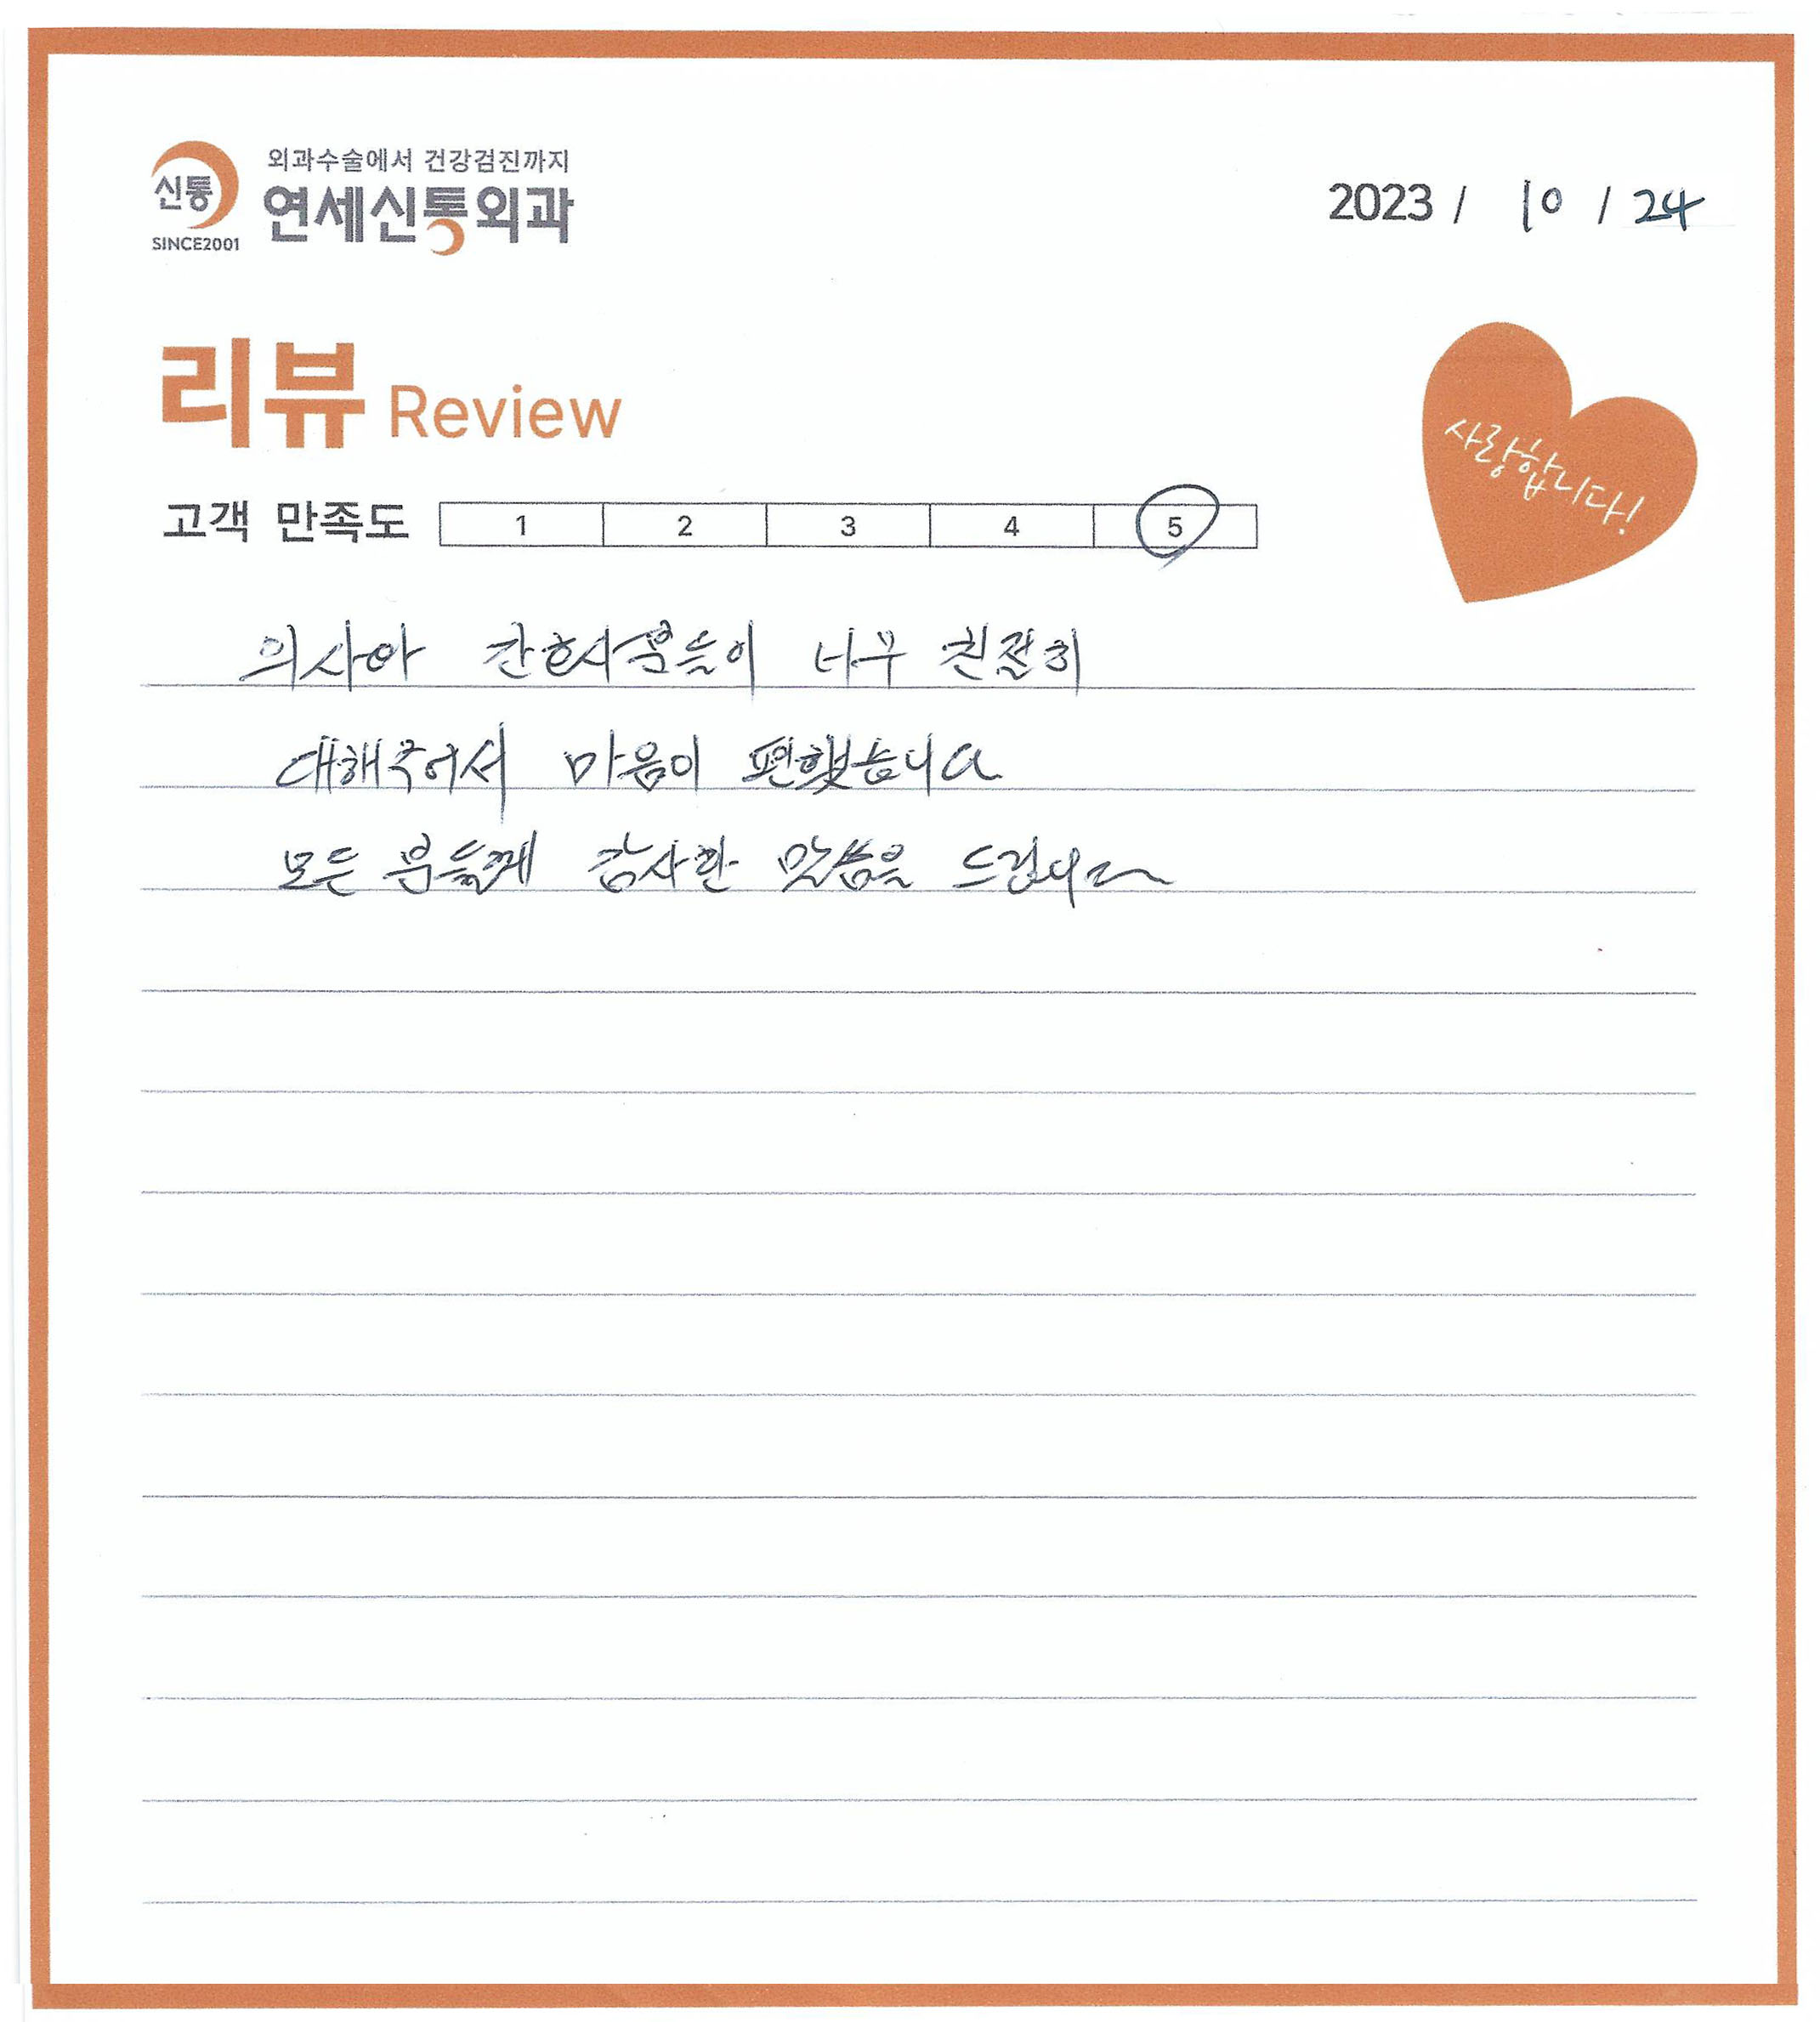 신통
SINCE2001
외과수술에서 건강검진까지
연세신통외과
2023 / 10 / 24
리뷰 Review
사랑합니다!
고객 만족도 1 2 3 4 5
의사와 간호사분들이 너무 친절히
대해주어서 마음이 편했습니다
모든 분들께 감사한 말씀을 드립니다